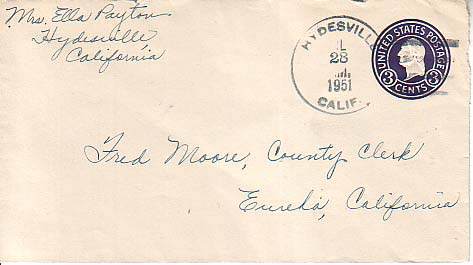 Mrs. Ella Payton
Hydesville
California
HYDESVILLE
28
1951
CALIF.
UNITED STATES POSTAGE
3 CENTS 3
Fred Moore, County Clerk
Eureka, California